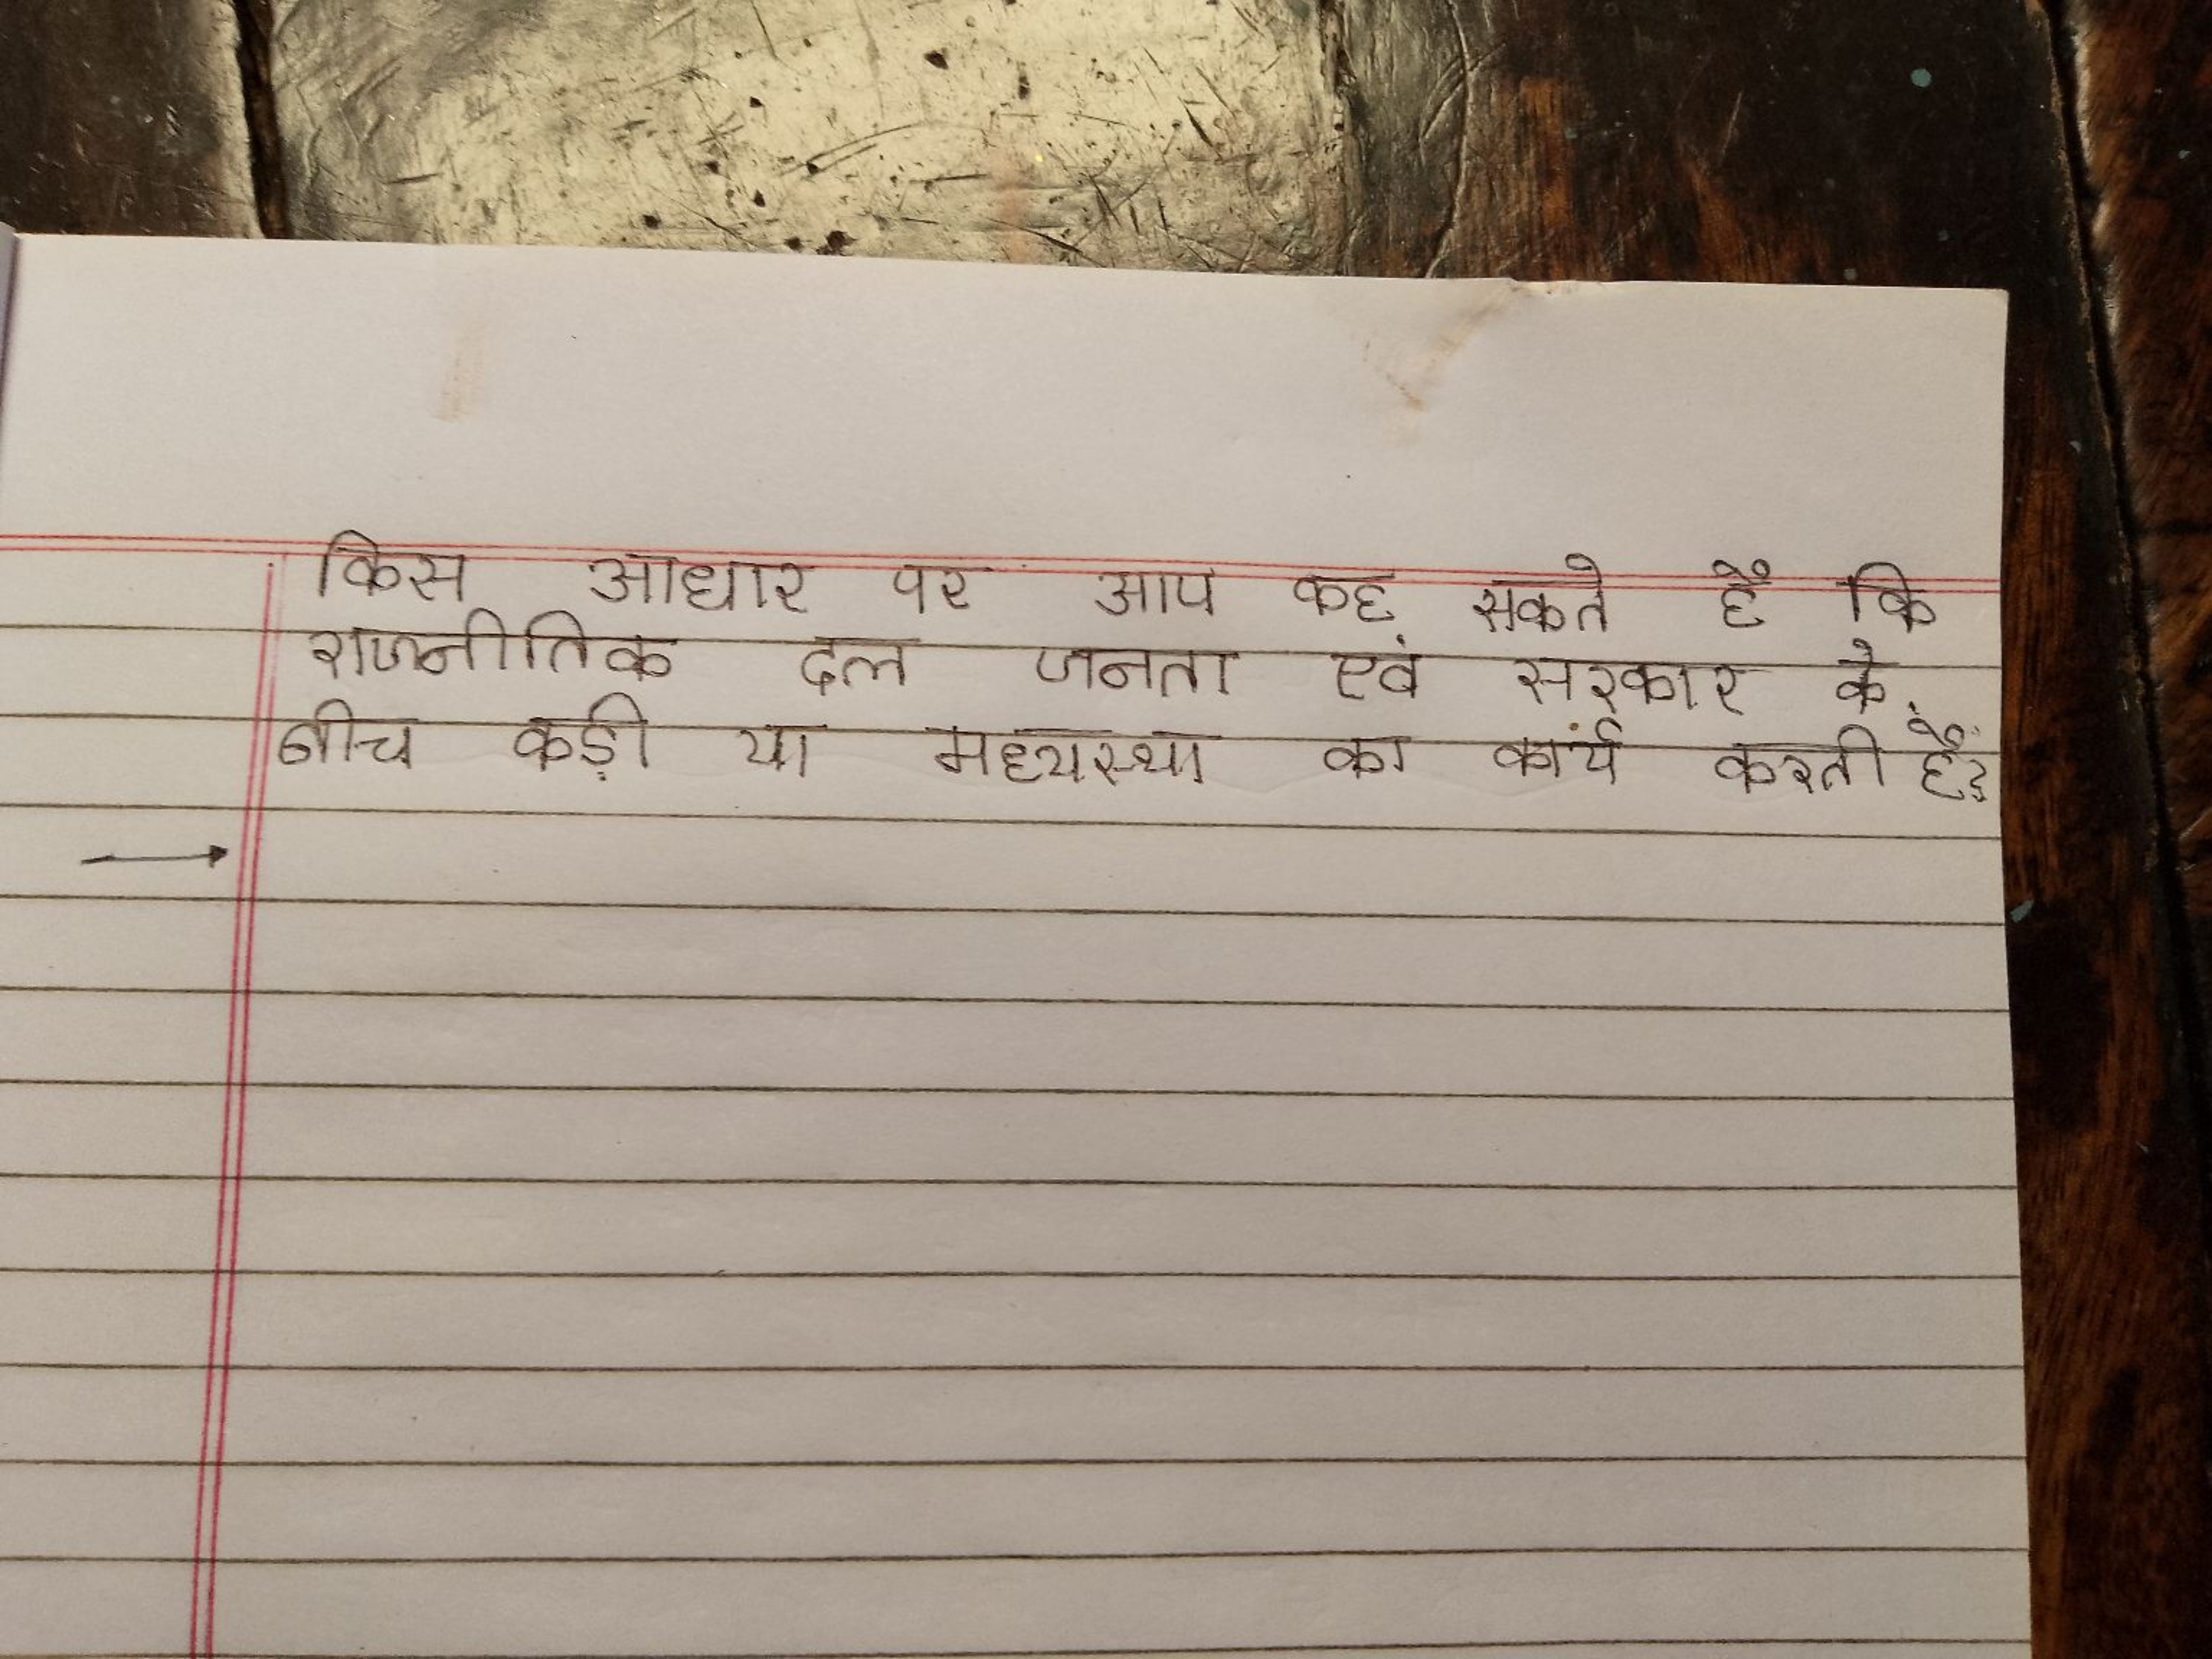 किस आधार पर आप कह सकते हैं कि
राजनीतिक दल जनता एवं सरकार के
बीच कड़ी या मध्यस्था का कार्य करती हैं?
→